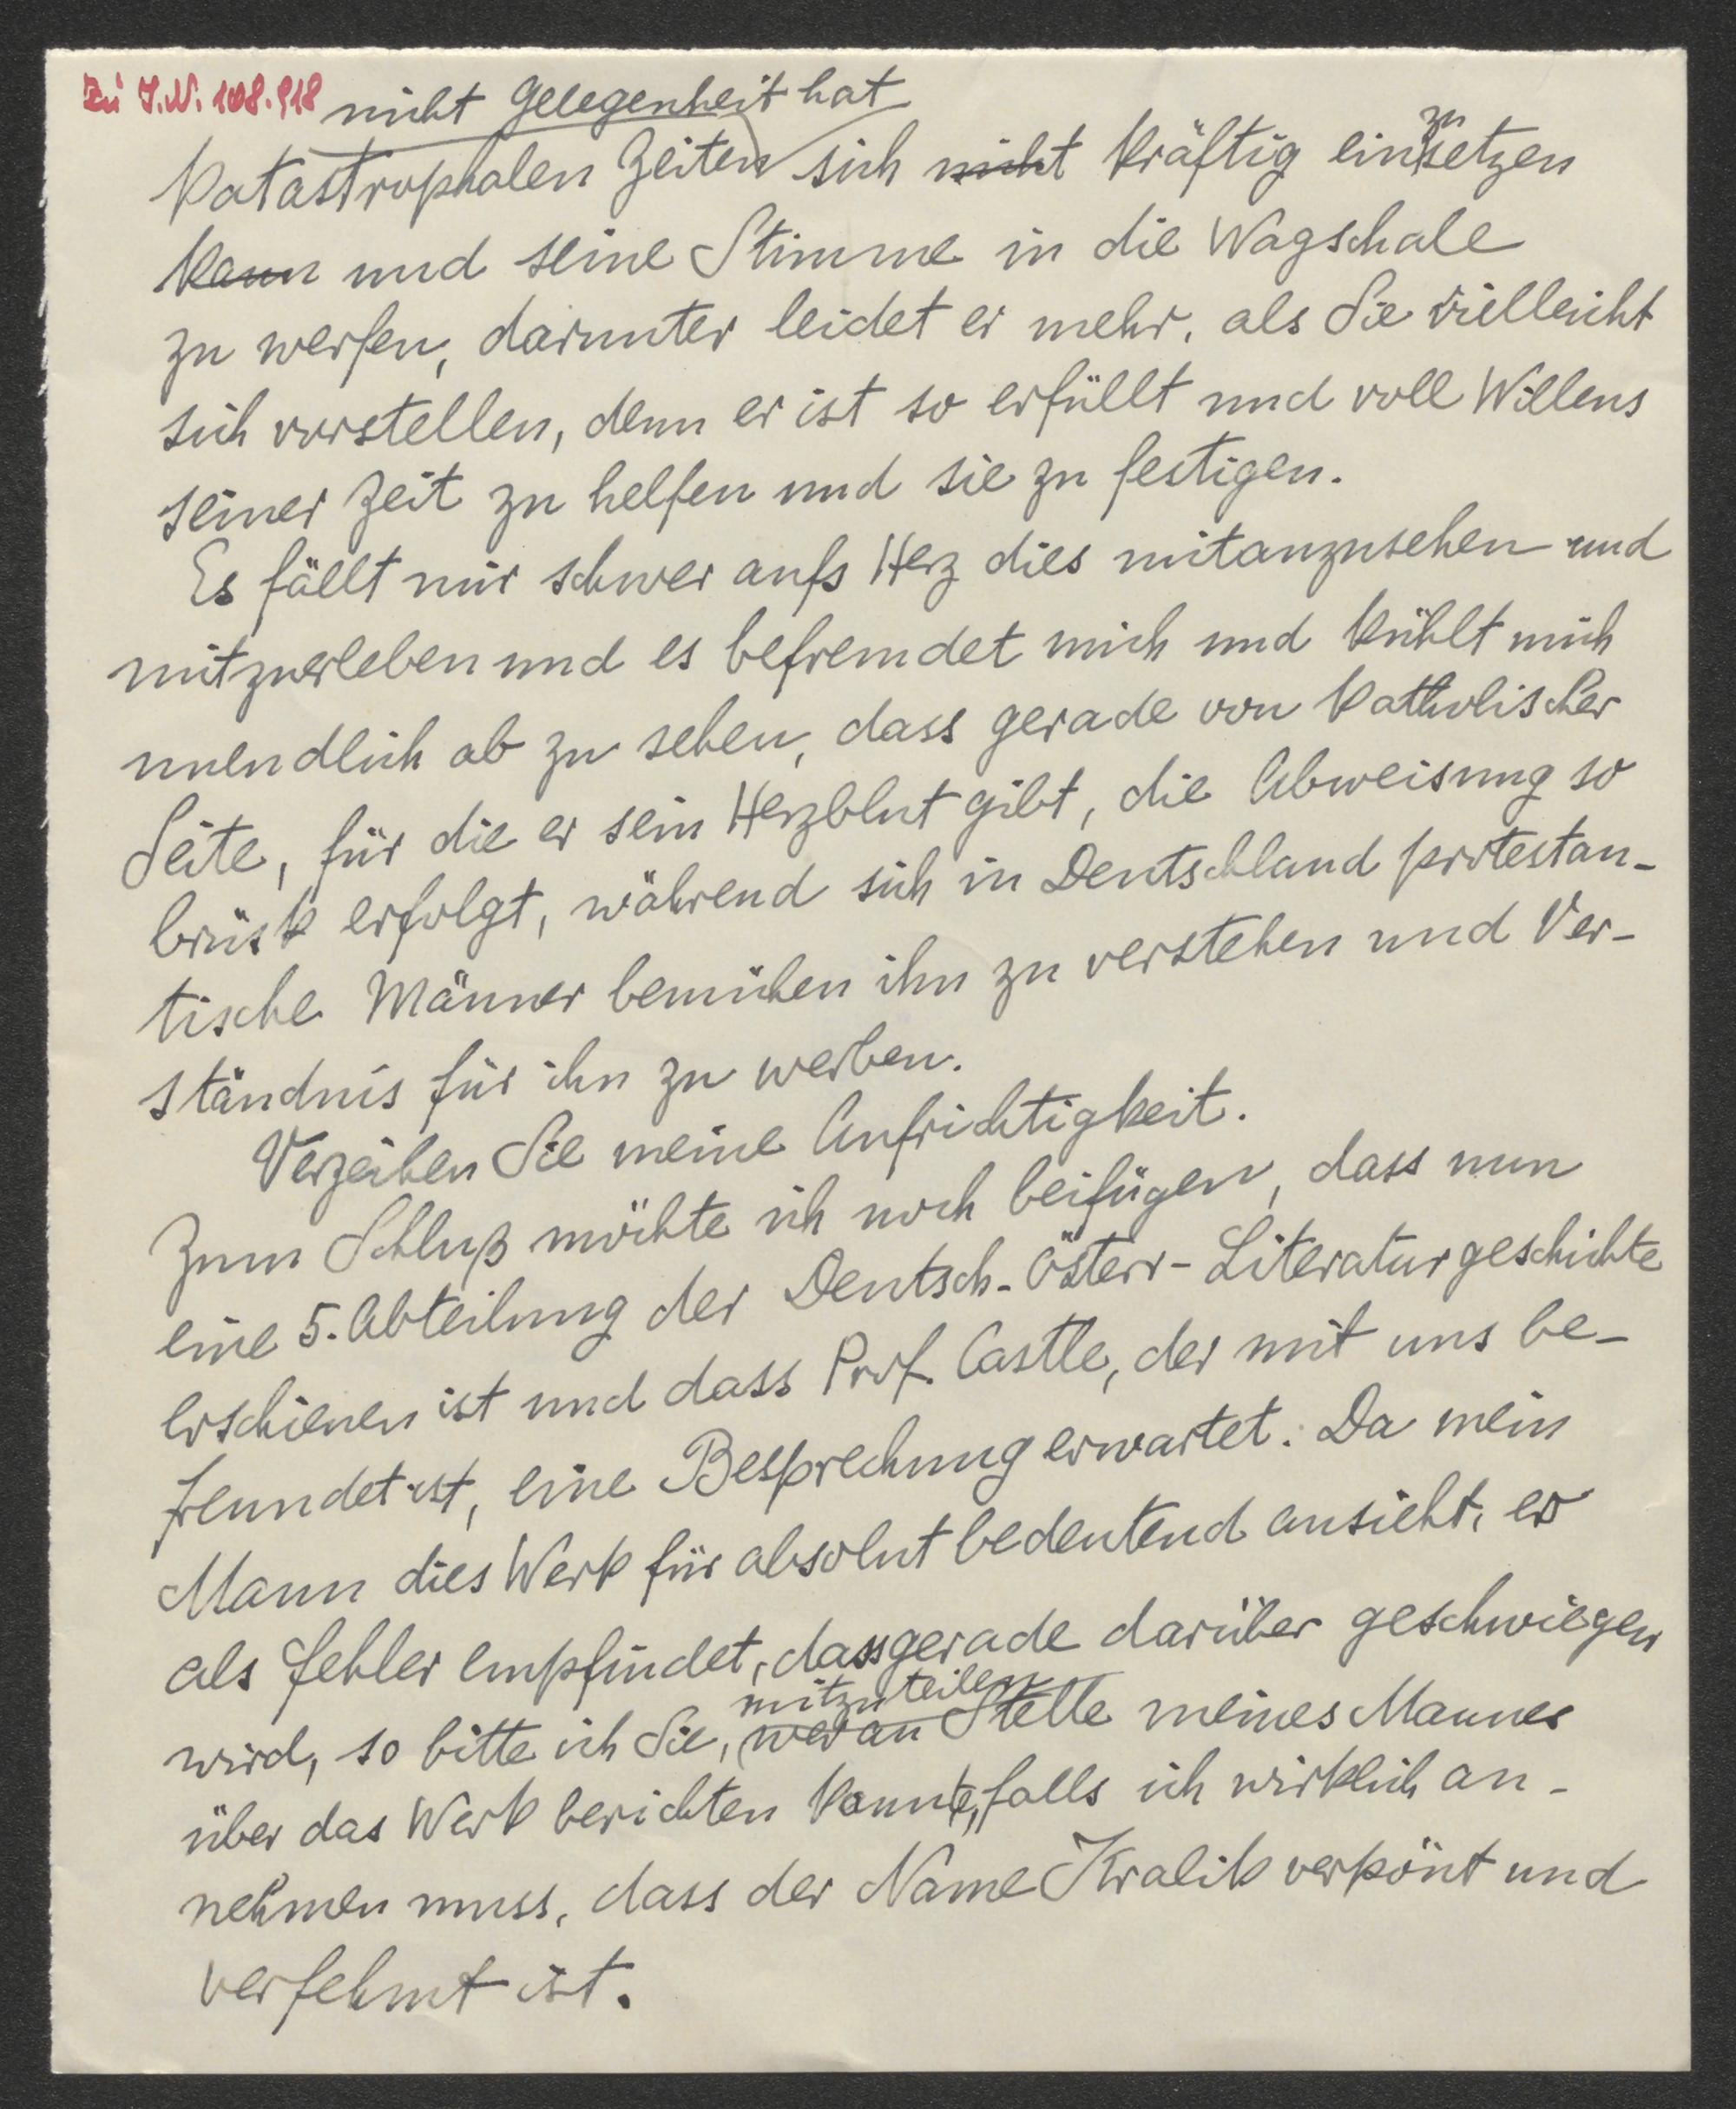 Zu I.N. 108.918
nicht Gelegenheit hat
katastrophalen Zeiten sich nicht kräftig einzusetzen
kann und seine Stimme in die Wagschale
zu werfen, darunter leidet er mehr, als Sie vielleicht
sich vorstellen, denn er ist so erfüllt und voll Willens
seiner Zeit zu helfen und sie zu festigen.
Es fällt mir schwer aufs Herz dies mitanzusehen und
mitzuerleben und es befremdet mich und kühlt mich
unendlich ab zu sehen, dass gerade von katholischer
Seite, für die er sein Herzblut gibt, die Abweisung so
brüsk erfolgt, während sich in Deutschland protestan-
tische Männer bemühen ihn zu verstehen und Ver-
ständnis für ihn zu werben.
Verzeihen Sie meine Aufrichtigkeit.
Zum Schluß möchte ich noch beifügen, dass nun
eine 5. Abteilung der Deutsch-Österr-Literaturgeschichte
erschienen ist und dass Prof. Castle, der mit uns be-
freundet ist, eine Besprechung erwartet. Da mein
Mann dies Werk für absolut bedeutend ansieht, es
als Fehler empfindet, dass gerade darüber geschwiegen
wird, so bitte ich Sie, mitzuteilen wer an Stelle meines Mannes
über das Werk berichten konnte, falls ich wirklich an-
nehmen muss, dass der Name Kralik verpönt und
verfehmt ist.